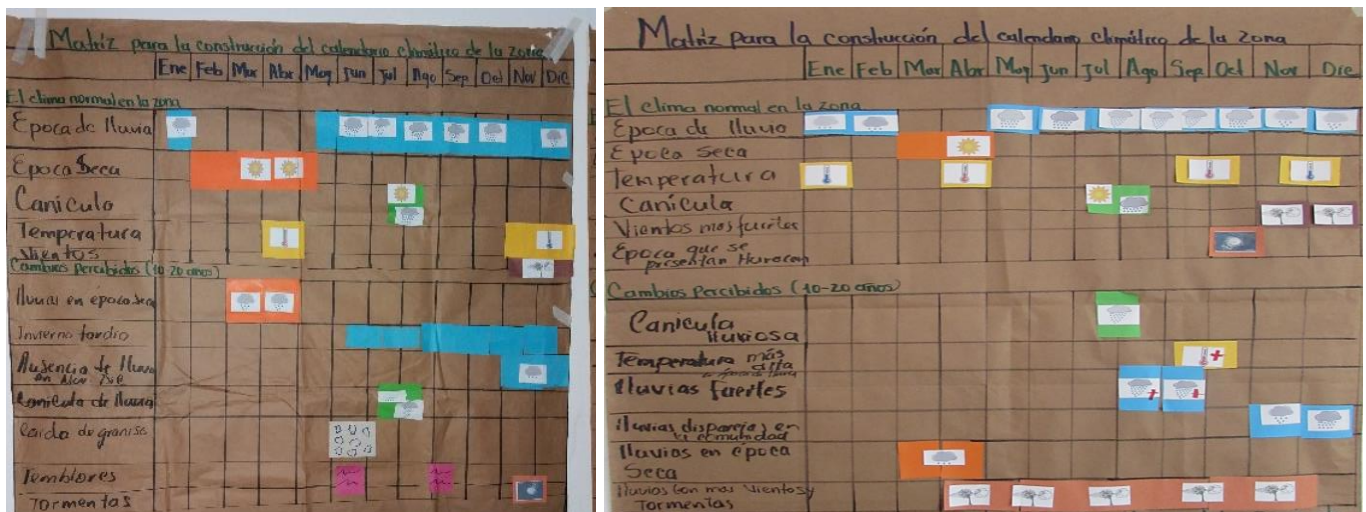 Matriz para la construcción del calendario climático de la zona
Ene Feb Mar Abr May Jun Jul Ago Sep Oct Nov Dic
El clima normal en la zona
Epoca de lluvia
Epoca Seca
Canicula
Temperatura
Vientos
Cambios Percibidos (10-20 años)
lluvias en epoca seca
Invierno tardio
Ausencia de lluvia
en Nov Dic
Canicula de lluvia
Caida de graniso
Temblores
Tormentas
Matriz para la construcción del calendario climático de la zona
Ene Feb Mar Abr May Jun Jul Ago Sep Oct Nov Dic
El clima normal en la zona
Epoca de lluvia
Epoca Seca
Temperatura
Canicula
Vientos mas fuertes
Epoca que se
presentan Huracan
Cambios Percibidos (10-20 años)
Canicula
lluviosa
Temperatura más
alta
lluvias fuertes
lluvias disparejas en
la comunidad
lluvias en epoca
Seca
lluvias con mas vientos y
Tormentas